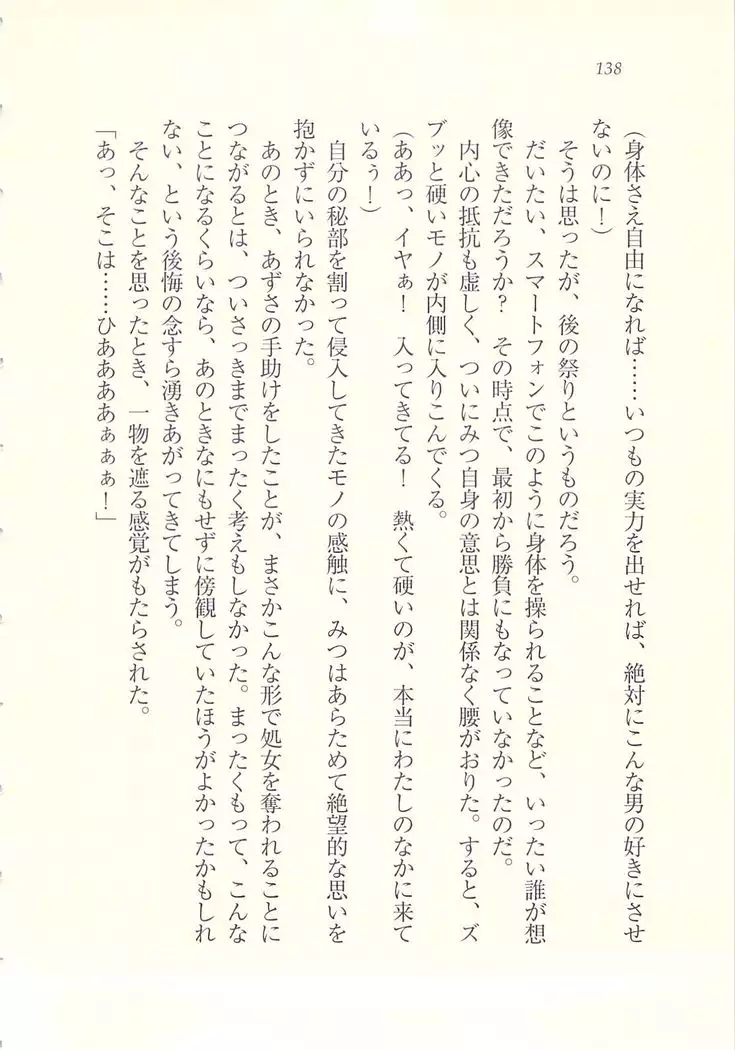 138
(身体さえ自由になれば……いつもの実力を出せれば、絶対にこんな男の好きにさせ
ないのに!)
そうは思ったが、後の祭りというものだろう。
だいたい、スマートフォンでこのように身体を操られることなど、いったい誰が想
像できただろうか? その時点で、最初から勝負にもなっていなかったのだ。
内心の抵抗も虚しく、ついにみつ自身の意思とは関係なく腰がおりた。すると、ズ
ブッと硬いモノが内側に入りこんでくる。
(ああっ、イヤぁ! 入ってきてる! 熱くて硬いのが、本当にわたしのなかに来て
いるぅ!)
自分の秘部を割って侵入してきたモノの感触に、みつはあらためて絶望的な思いを
抱かずにいられなかった。
あのとき、あずさの手助けをしたことが、まさかこんな形で処女を奪われることに
つながるとは、ついさっきまでまったく考えもしなかった。まったくもって、こんな
ことになるくらいなら、あのときなにもせずに傍観していたほうがよかったかもしれ
ない、という後悔の念すら湧きあがってきてしまう。
そんなことを思ったとき、一物を遮る感覚がもたらされた。
「あっ、そこは……ひああああぁぁぁ!」